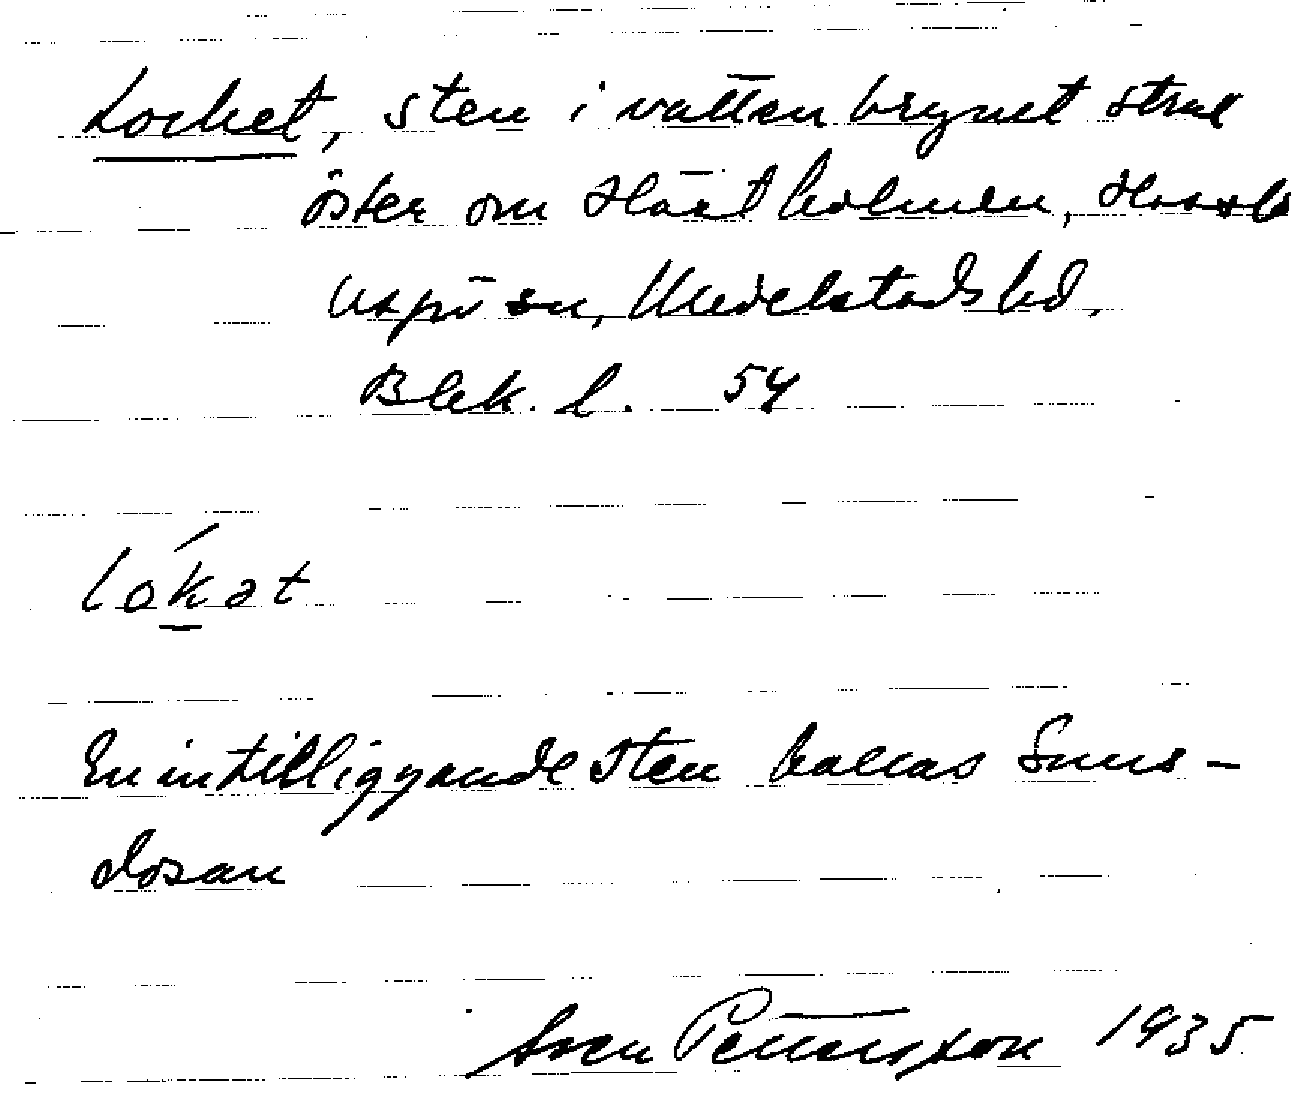 Locket, sten i vattenbrynet strax
öster om Härtholmen, Hassle
Uspö sn, Medelstads hd,
Blek. l. 54
lókat
En intilliggande sten kallas Snus-
dosan
Sven Pettersson 1935